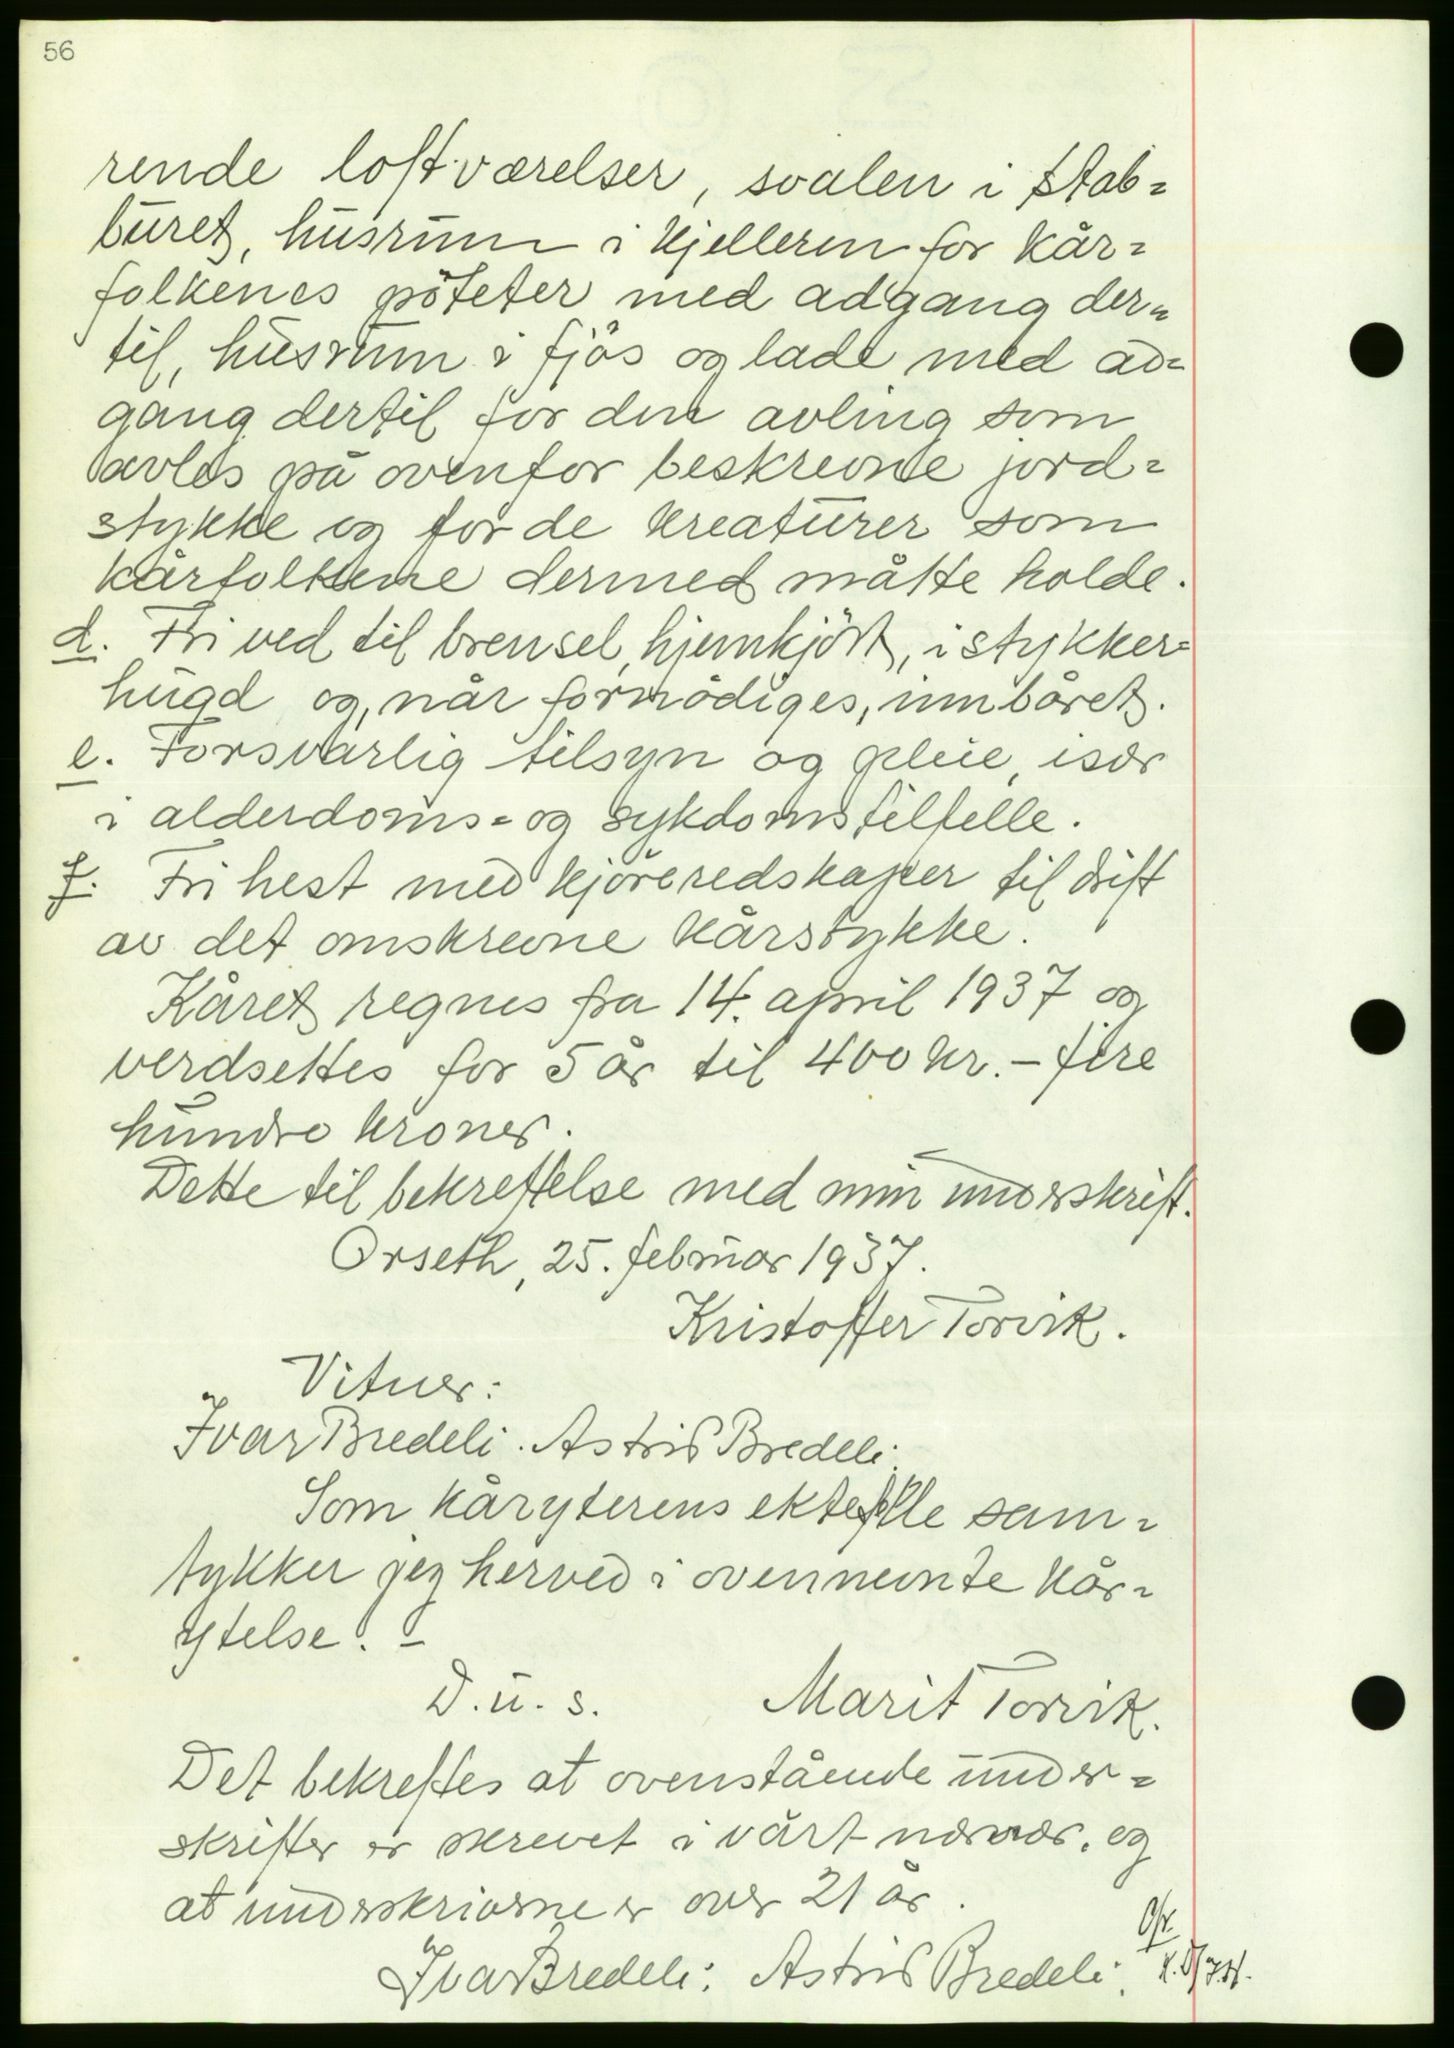 56
rende loftværelser, svalen i stab=
buret, husrum i kjelleren for kår=
folkenes poteter med adgang der=
til, husrum i fjös og lade med ad=
gang dertil for den avling som
avles på ovenfor beskrevne jord=
stykke og for de kreaturer som
kårfolkene dermed måtte holde.
d. Fri ved til brensel, hjemkjört, istykker=
hugd og, når fornödiges, innbåret.
e. Forsvarlig tilsyn og pleie, især
i alderdoms= og sykdomstilfelle.
f. Fri hest med kjöreredskaper til drift
av det omskrevne kårstykke.
Kåret regnes fra 14. april 1937 og
verdsettes for 5 år til 400 kr. - fire
hundre kroner.
Dette til bekreftelse med min underskrift.
Orseth, 25. februar 1937.
Kristoffer Torvik.
Vitner:
Ivar Bredeli. Astrid Bredeli.
Som kåryterens ektefelle sam=
tykker jeg herved i ovennevnte kår=
ytelse. -
D. u. s. Marit Torvik.
Det bekreftes at ovenstående under=
skrifter er skrevet i vårt nærvær, og
at underskriverne er over 21 år.
Ivar Bredeli. Astrid Bredeli.